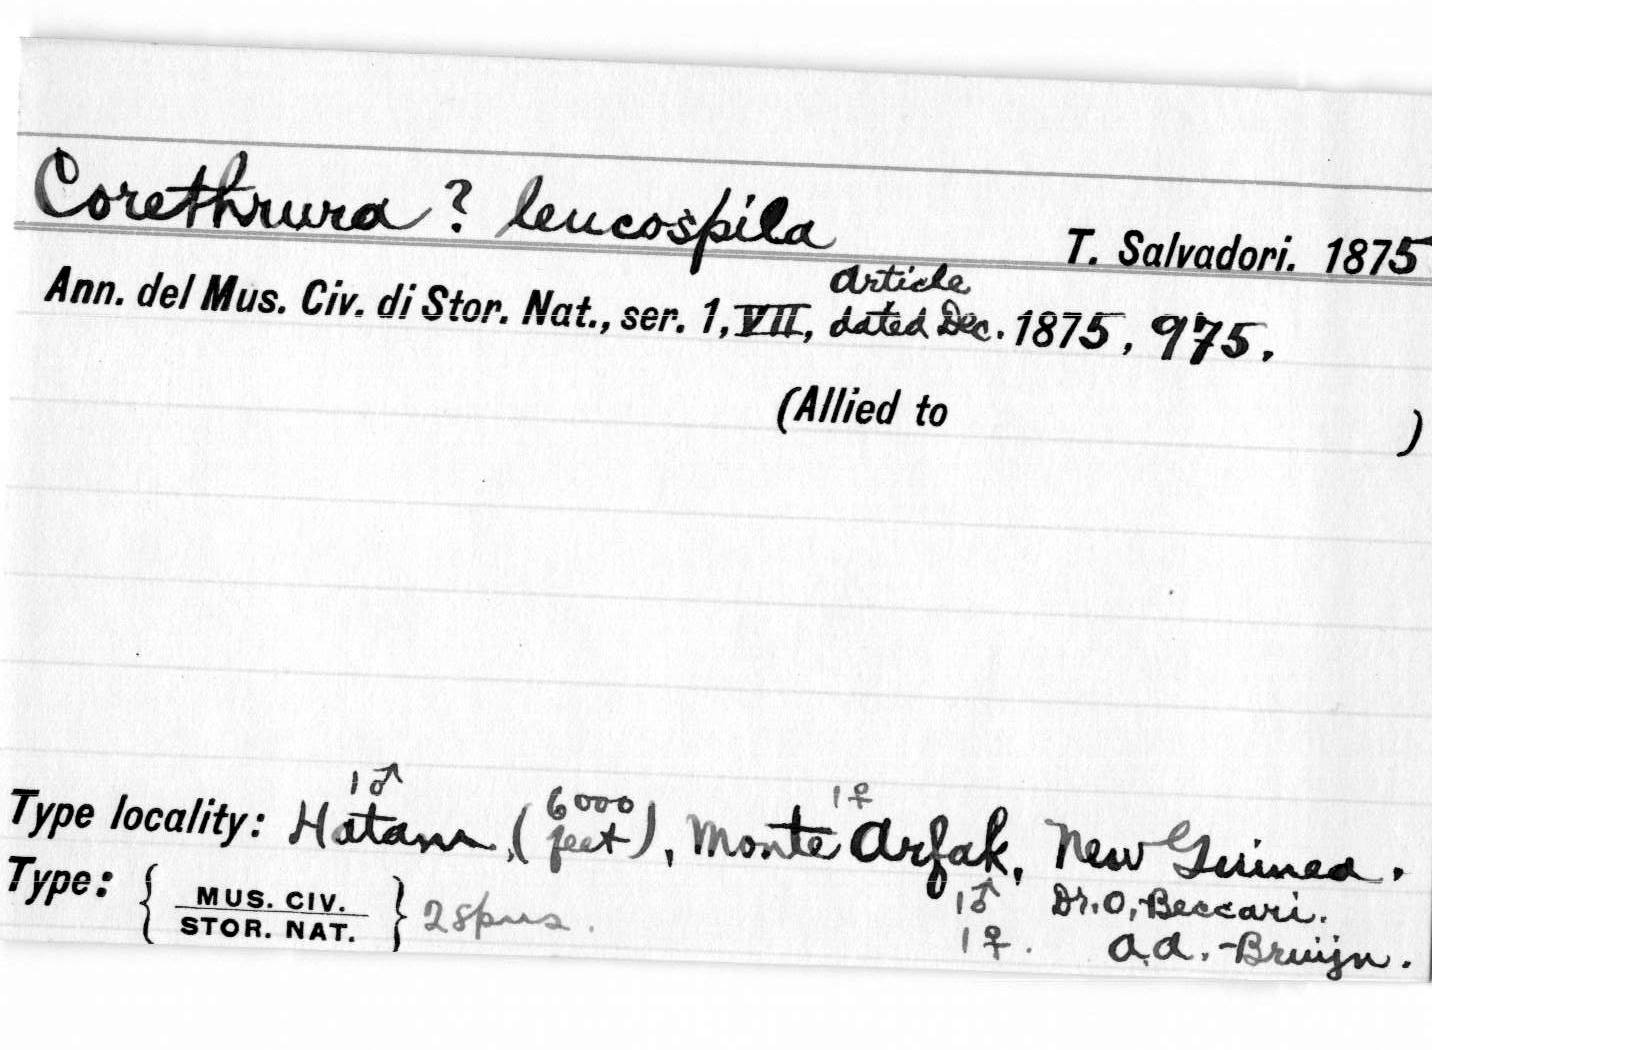 Corethrura ? leucospila
T. Salvadori. 1875
article
Ann. del Mus. Civ. di Stor. Nat., ser. 1, VII, dated Dec. 1875, 975.
(Allied to )
1♂ 1♀
Type locality: Hatam, (6000 feet), Monte Arfak, New Guinea.
Type: { MUS. CIV. STOR. NAT. } 2 spms.
1♂ Dr. O. Beccari.
1♀. a.a. Bruijn.